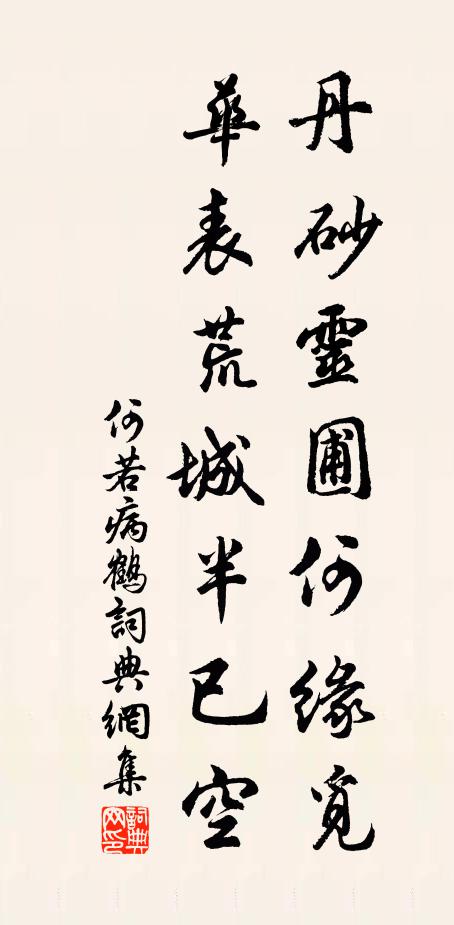 丹砂靈圃何緣覓
華表荒城半已空
何若病鶴詞典網集
詞典网印